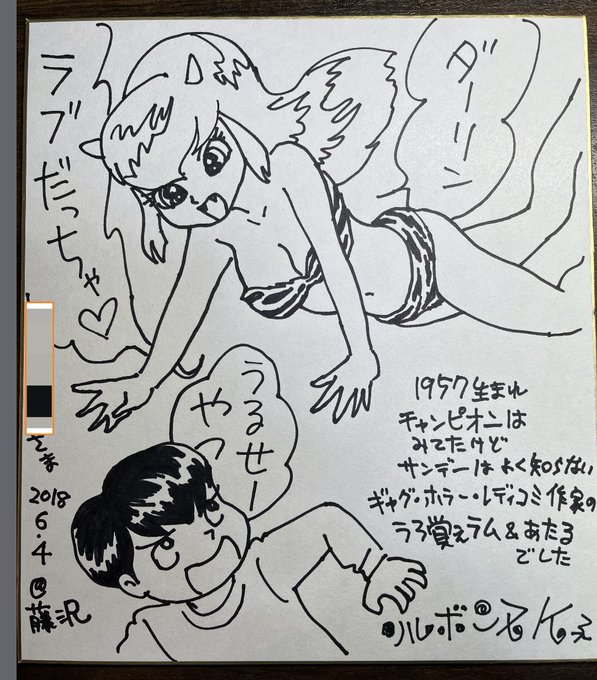 ダーリン
ラブだっちゃ♡
うるせー
やつ
1957生まれ
チャンピオンは
みてたけど
サンデーはよく知らない
ギャグ・ホラー・レディコミ作家の
うろ覚えラム&あたる
でした
さま
2018
6.4
@
藤沢